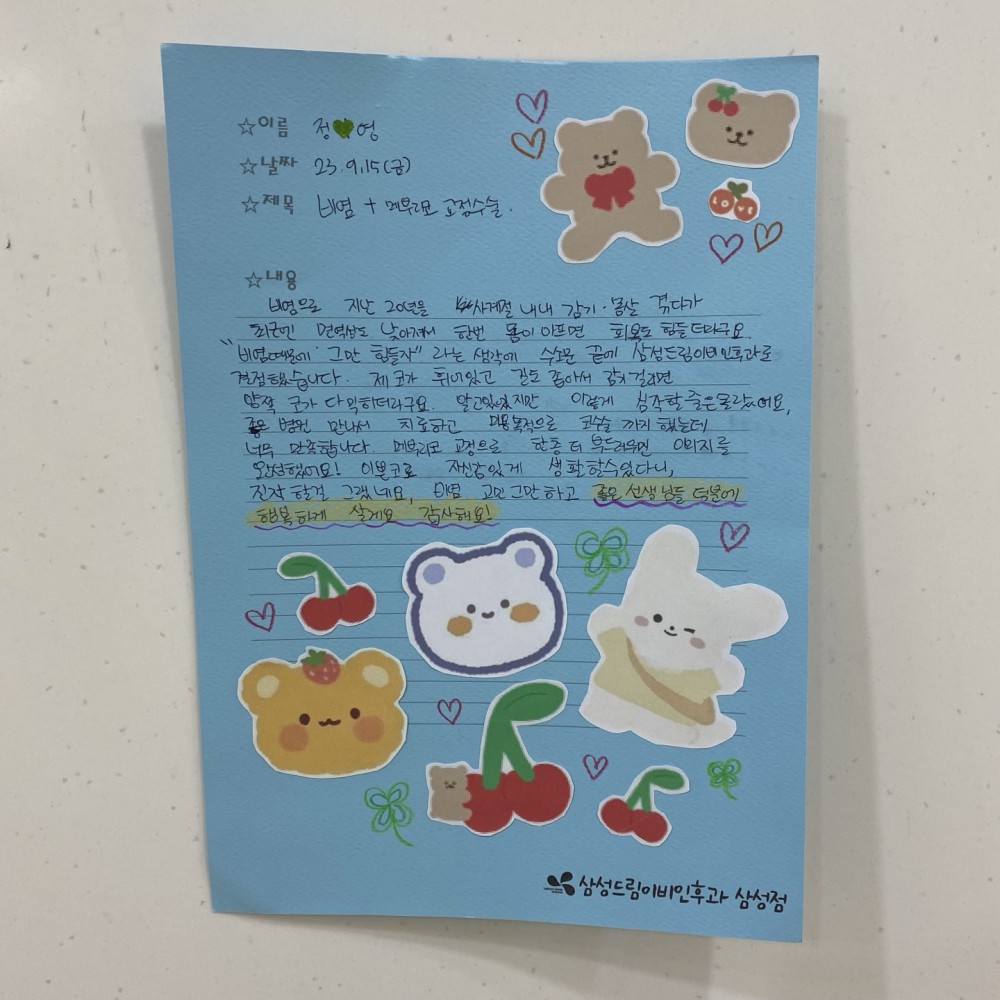 ☆이름 정💚영
☆날짜 23.9.15(금)
☆제목 비염 + 메부리코 교정수술.
☆내용
비염으로 지난 20년을 사계절 내내 감기·몸살 겪다가
최근엔 면역성도 낮아져서 한번 몸이 아프면 회복도 힘들더라구요.
"비염때문에 그만 힘들자" 라는 생각에 수소문 끝에 삼성드림이비인후과로
결정했습니다. 제 코가 휘어있고 길도 좁아서 감기 걸리면
양쪽 코가 다 막히더라구요. 알고있었지만 이렇게 심각할 줄은 몰랐어요,
좋은 병원 만나서 치료하고 미용목적으로 코수술 까지 했는데
너무 만족합니다. 메부리코 교정으로 한층 더 부드러우면 이미지를
완성했어요! 이쁜코로 자신감있게 생활할수있다니,
진작 할걸 그랬네요, 비염 고민 그만하고 좋은 선생님들 덕분에
행복하게 살게요 감사해요!
LOVE
삼성드림이비인후과 삼성점